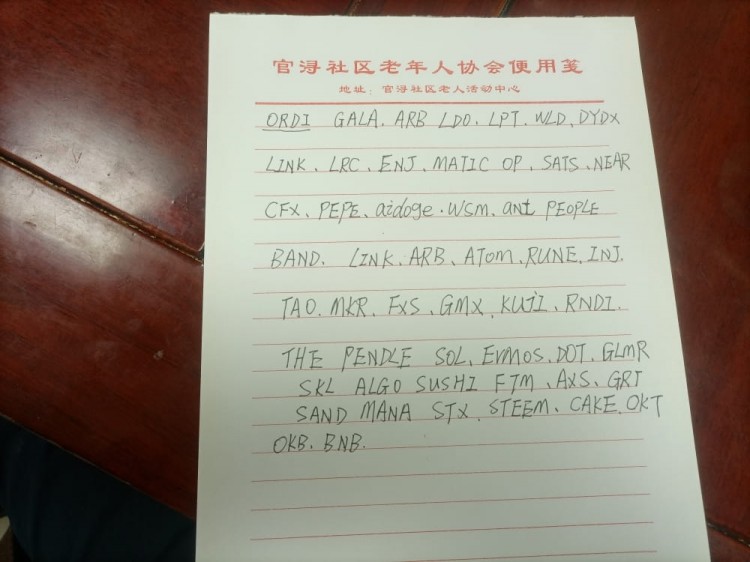 官浔社区老年人协会便用笺
地址：官浔社区老人活动中心
ORDI GALA. ARB LDO. LPT. WLD、DYDX
LINK、LRC、ENJ、MATIC OP、SATS、NEAR
CFX、PEPE、aidoge. WSM. ant PEOPLE
BAND. LINK. ARB、ATOM、RUNE. INJ.
TAO. MKR. FXS、GMX、KUJI、RNDI.
THE PENDLE SOL. EVMOS. DOT. GLMR
SKL ALGO SUSHI FTM、AXS、GRT
SAND MANA STX. STEEM、CAKE. OKT
OKB. BNB.